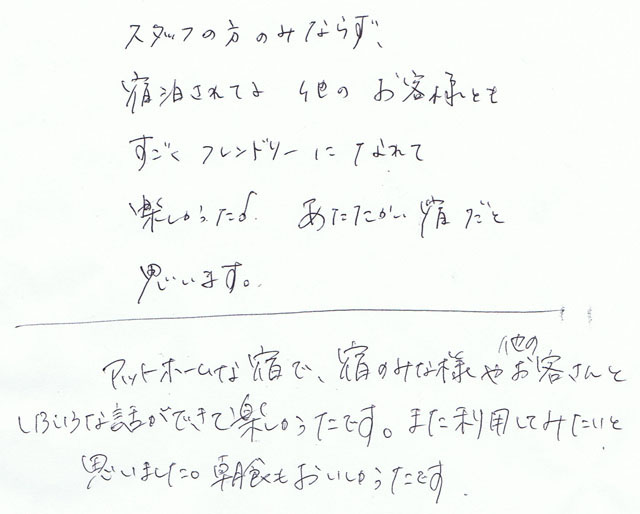 スタッフの方のみならず、
宿泊されてる 他の お客様とも
すごく フレンドリー に なれて
楽しかった♪ あたたかい 宿 だと
思います。
アットホームな宿で、宿のみな様や他のお客さんと
いろいろな話ができて楽しかったです。また利用してみたいと
思いました。朝食もおいしかったです.